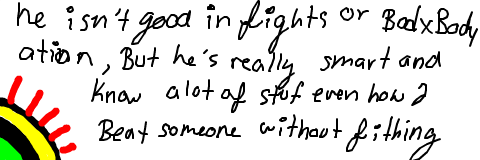 he isn't good in fights or BodxBody
ation, But he's really smart and
know alot of stuf even how 2
Beat someone without fithing